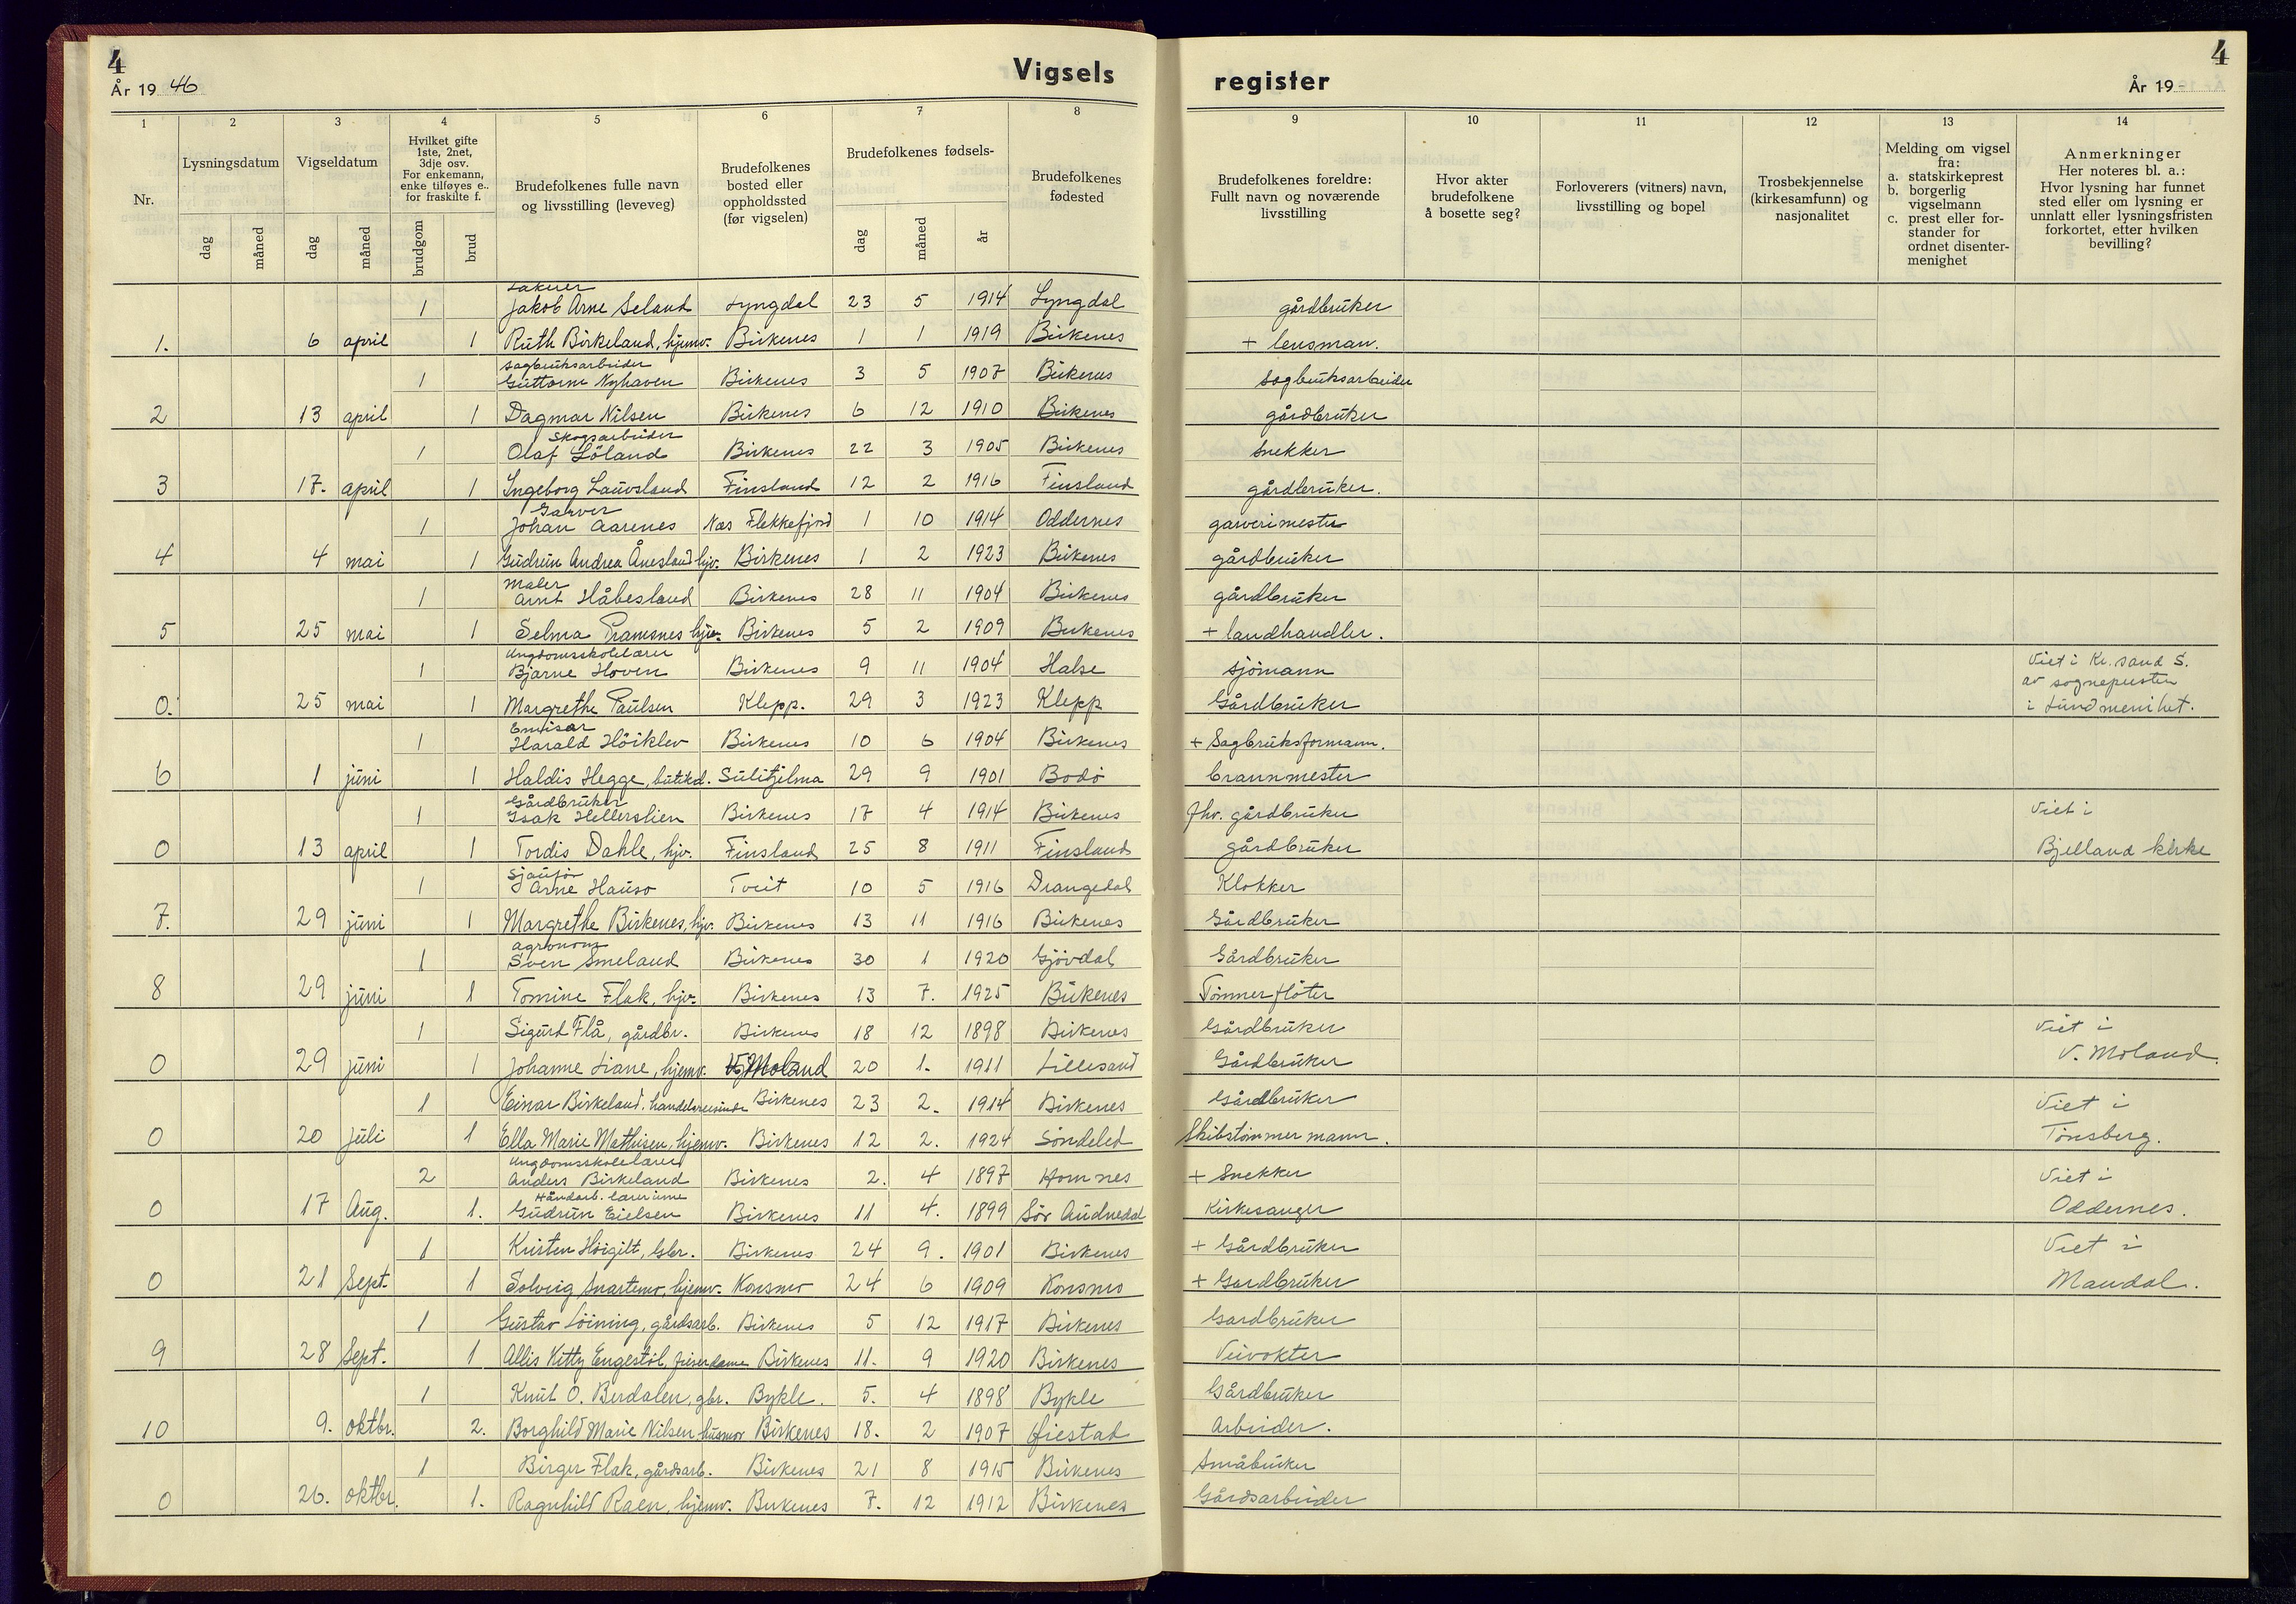 4
År 19 46
Vigsels
register
År 19
4
1 2 3 4 5 6 7 8
9 10 11 12 13 14
Nr.
Lysningsdatum
dag måned
Vigseldatum
dag måned
Hvilket gifte
1ste, 2net,
3dje osv.
For enkemann,
enke tilføyes e..
for fraskilte f.
brudgom brud
Brudefolkenes fulle navn
og livsstilling (leveveg)
Brudefolkenes
bosted eller
oppholdssted
(før vigselen)
Brudefolkenes fødsels-
dag måned år
Brudefolkenes
fødested
Brudefolkenes foreldre:
Fullt navn og noværende
livsstilling
Hvor akter
brudefolkene
å bosette seg?
Forloverers (vitners) navn,
livsstilling og bopel
Trosbekjennelse
(kirkesamfunn) og
nasjonalitet
Melding om vigsel
fra:
a. statskirkeprest
b. borgerlig
vigselmann
c. prest eller for-
stander for
ordnet disenter-
menighet
Anmerkninger
Her noteres bl. a.:
Hvor lysning har funnet
sted eller om lysning er
unnlatt eller lysningsfristen
forkortet, etter hvilken
bevilling?
1 Jakob Arne Seland Lyngdal 23 5 1914 Lyngdal gårdbruker
1. 6 april 1 Ruth Birkeland, hjemv. Birkenes 1 1 1919 Birkenes + lensman.
sagbruksarbeider
1 Guttorm Nyhaven Birkenes 3 5 1907 Birkenes sagbruksarbeider
2 13 april 1 Dagmar Nilsen Birkenes 6 12 1910 Birkenes gårdbruker
Skogsarbeider
1 Olaf Löland Birkenes 22 3 1905 Birkenes snekker
3 17. april 1 Ingeborg Lauvsland Finsland 12 2 1916 Finsland gårdbruker.
Garver
1 Johan Aarenes Nes Flekkefjord 1 10 1914 Oddernes garverimester
4 4 mai 1 Gudrun Andrea Ånesland hjv. Birkenes 1 2 1923 Birkenes gårdbruker
Maler
1 Arnt Håbesland Birkenes 28 11 1904 Birkenes gårdbruker
5 25 mai 1 Selma Tramsnes hjv. Birkenes 5 2 1909 Birkenes + landhandler.
Ungdomsskolelærer
1 Bjarne Hoven Birkenes 9 11 1904 Halse sjömann Viet i Kr. sand S.
av sognepresten
0. 25 mai 1 Margrethe Paulsen Klepp. 29 3 1923 Klepp Gårdbruker i Lund menihet.
Emisær
1 Harald Höiklev Birkenes 10 6 1904 Birkenes + Sagbruksformann.
6 1 juni 1 Haldis Hegge, butikd. Sulitjelma 29 9 1901 Bodö brannmester
Gårdbruker
1 Isak Hellerslien Birkenes 17 4 1914 Birkenes fhv. gårdbruker Viet i
0 13 april 1 Tordis Dahle, hjv. Finsland 25 8 1911 Finsland gårdbruker Bjelland kirke
Sjauför
1 Arne Hauso Tveit 10 5 1916 Drangedal Klokker
7. 29 juni 1 Margrethe Birkenes, hjv. Birkenes 13 11 1916 Birkenes Gårdbruker
agronom
1 Sven Smeland Birkenes 30 1 1920 Gjövdal Gårdbruker
8 29 juni 1 Tomine Flak, hjv. Birkenes 13 7. 1925 Birkenes Tömmerflöter
1 Sigurd Flå, gårdbr. Birkenes 18 12 1898 Birkenes Gårdbruker Viet i
0 29 juni 1 Johanne Liane, hjemv. V. Moland 20 1. 1911 Lillesand Gårdbruker V. Moland.
1 Einar Birkeland, handelsreisende Birkenes 23 2. 1914 Birkenes Gårdbruker Viet i
0 20 Juli 1 Ella Marie Mathisen, hjemv. Birkenes 12 2. 1924 Söndeled Skibstömmermann. Tönsberg.
Ungdomsskolelærer
2 Anders Birkeland Birkenes 2. 4 1897 Homnes + Snekker Viet i
Håndarb. lærerinne
0 17 Aug. 1. Gudrun Eielsen Birkenes 11 4. 1899 Sör Audnedal Kirkesanger Oddernes.
1 Kristen Höigilt, Gbr. Birkenes 24 9. 1901 Birkenes + Gårdbruker Viet i
0 21 Sept. 1 Solveig Snartemo, hjemv. Konsmo 24 6 1909 Konsmo + Gardbruker Mandal.
1 Gustav Löining, gårdsarb. Birkenes 5 12 1917 Birkenes Gardbruker
9 28 Sept. 1 Allis Kitty Engestöl, friserdame Birkenes 11. 9 1920 Birkenes Veivokter
1 Knut O. Berdalen, gbr. Bykle. 5. 4 1898 Bykle Gårdbruker
10 9. oktbr. 2. Borghild Marie Nilsen husmor Birkenes 18. 2 1907 Øiestad Arbeider.
1 Birger Flak, gårdsarb. Birkenes 21 8 1915 Birkenes Småbruker
0 26. oktbr. 1. Ragnhild Raen, hjemv. Birkenes 7. 12 1912 Birkenes Gårdsarbeider